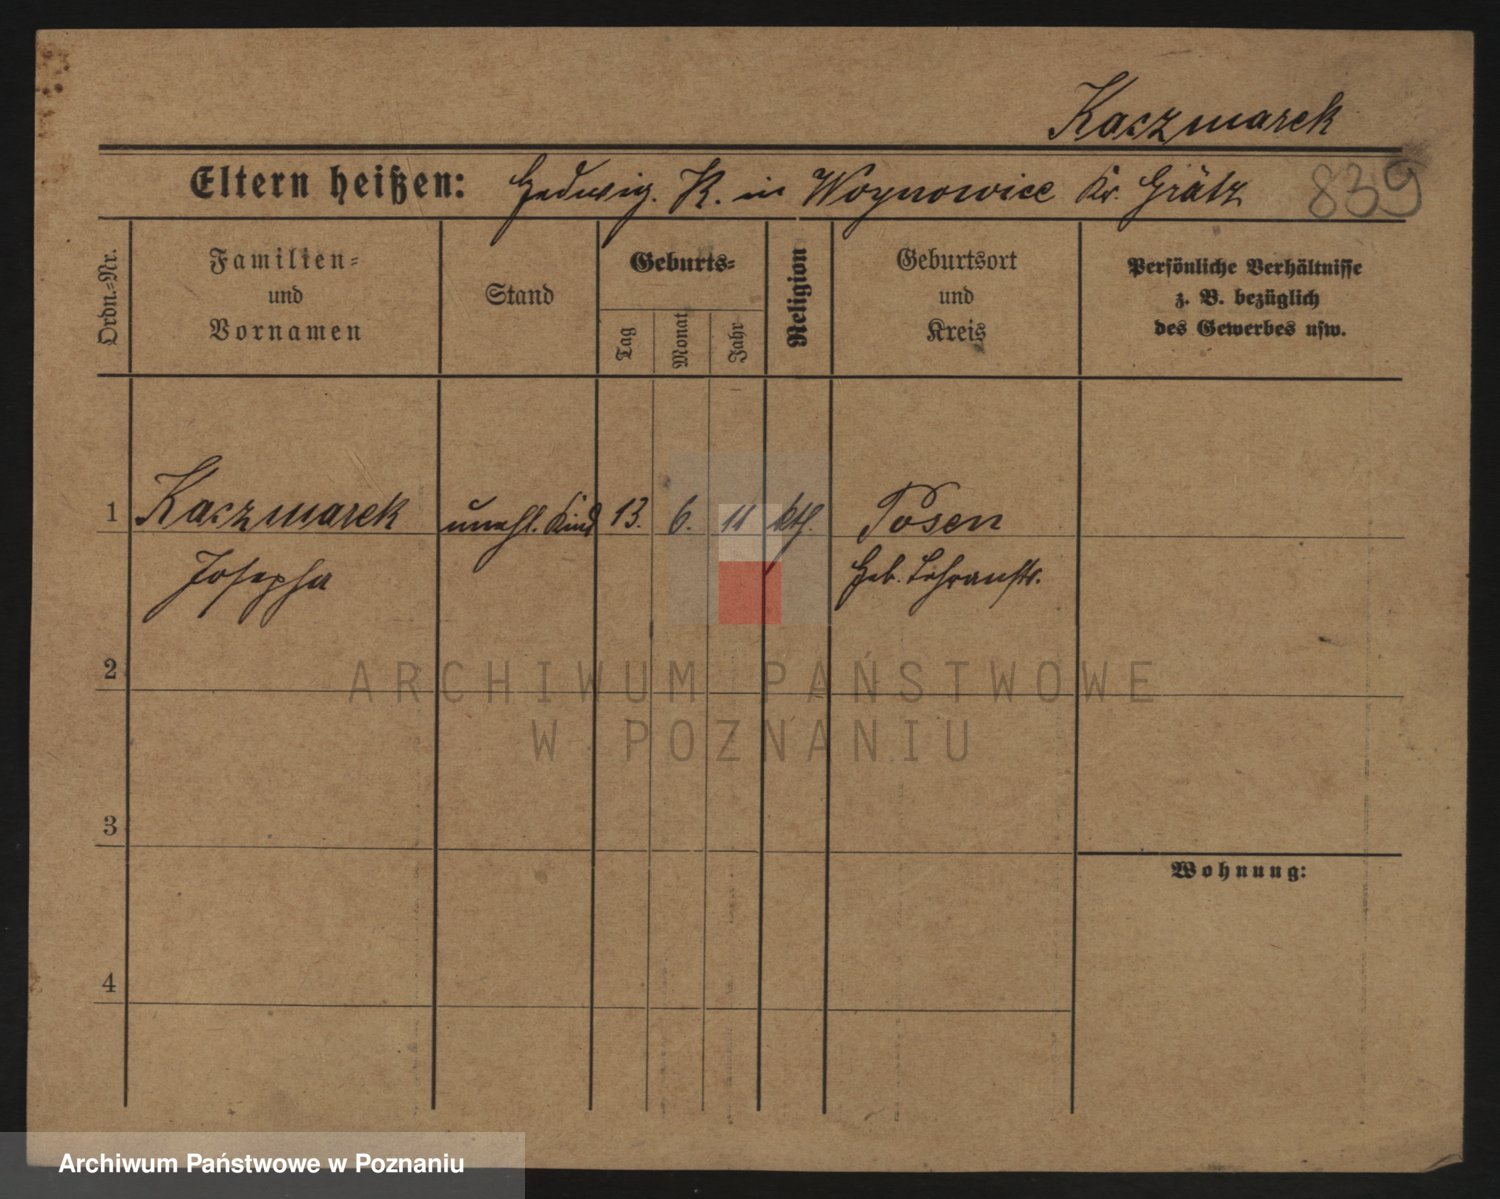 Kaczmarek
Eltern heißen: Hedwig. K. in Woynowice Kr. Grätz 839
Ordn.-Nr.
Familien-
und
Vornamen
Stand
Geburts-
Tag
Monat
Jahr
Religion
Geburtsort
und
Kreis
Persönliche Verhältnisse
z. B. bezüglich
des Gewerbes usw.
1 Kaczmarek unehl. Kind 13. 6. 11 kth. Posen
Josepha Heb. Lehranst.
2
ARCHIWUM PAŃSTWOWE
W POZNANIU
3
Wohnung:
4
Archiwum Państwowe w Poznaniu